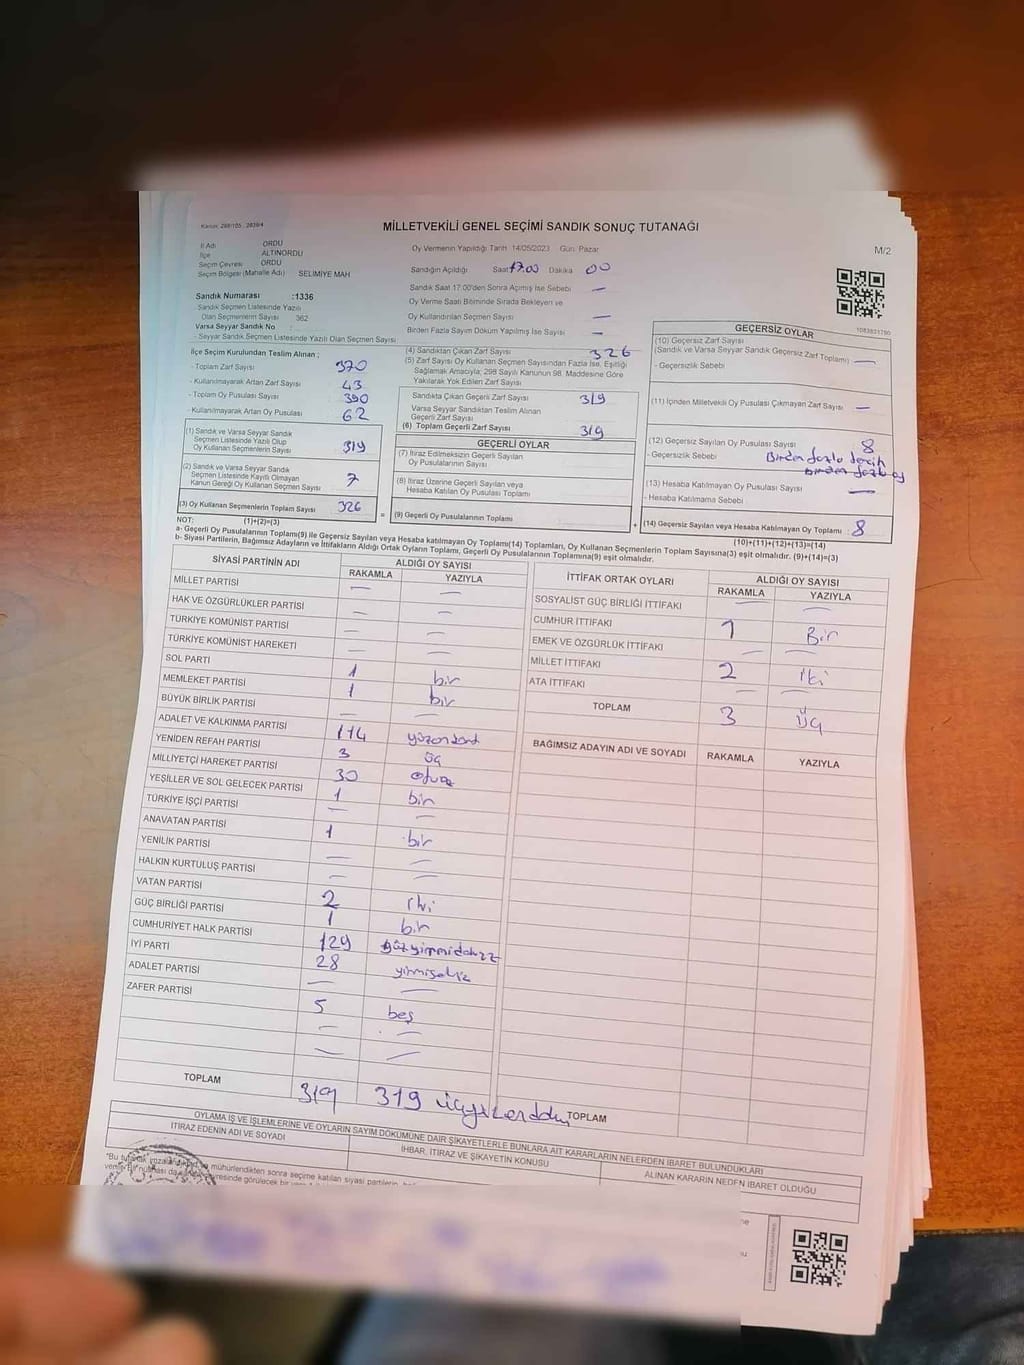 Kanun: 298/105 , 2839/4
MİLLETVEKİLİ GENEL SEÇİMİ SANDIK SONUÇ TUTANAĞI
M/2
İl Adı ORDU
İlçe ALTINORDU
Seçim Çevresi ORDU
Seçim Bölgesi (Mahalle Adı) SELİMİYE MAH
Sandık Numarası :1336
Sandık Seçmen Listesinde Yazılı
Olan Seçmenlerin Sayısı 362
Varsa Seyyar Sandık No :
- Seyyar Sandık Seçmen Listesinde Yazılı Olan Seçmen Sayısı
Oy Vermenin Yapıldığı Tarih 14/05/2023 Gün: Pazar
Sandığın Açıldığı Saat 17.00 Dakika 00
Sandık Saat 17:00'den Sonra Açımış İse Sebebi —
Oy Verme Saati Bitiminde Sırada Bekleyen ve
Oy Kullandırılan Seçmen Sayısı —
Birden Fazla Sayım Döküm Yapılmış İse Sayısı —
İlçe Seçim Kurulundan Teslim Alınan ;
- Toplam Zarf Sayısı 370
- Kullanılmayarak Artan Zarf Sayısı 43
- Toplam Oy Pusulası Sayısı 390
- Kullanılmayarak Artan Oy Pusulası 62
(1) Sandık ve Varsa Seyyar Sandık
Seçmen Listesinde Yazılı Olup
Oy Kullanan Seçmenlerin Sayısı 319
(2) Sandık ve Varsa Seyyar Sandık
Seçmen Listesinde Kayıtlı Olmayan
Kanun Gereği Oy Kullanan Seçmen Sayısı 7
(3) Oy Kullanan Seçmenlerin Toplam Sayısı 326
(4) Sandıktan Çıkan Zarf Sayısı 326
(5) Zarf Sayısı Oy Kullanan Seçmen Sayısından Fazla İse, Eşitliği
Sağlamak Amacıyla; 298 Sayılı Kanunun 98. Maddesine Göre
Yakılarak Yok Edilen Zarf Sayısı
Sandıkta Çıkan Geçerli Zarf Sayısı 319
Varsa Seyyar Sandıktan Teslim Alınan
Geçerli Zarf Sayısı
(6) Toplam Geçerli Zarf Sayısı 319
GEÇERLİ OYLAR
(7) İtiraz Edilmeksizin Geçerli Sayılan
Oy Pusulalarının Sayısı
(8) İtiraz Üzerine Geçerli Sayılan veya
Hesaba Katılan Oy Pusulası Toplamı
= (9) Geçerli Oy Pusulalarının Toplamı +
1083831790
GEÇERSİZ OYLAR
(10) Geçersiz Zarf Sayısı
(Sandık ve Varsa Seyyar Sandık Geçersiz Zarf Toplamı) —
- Geçersizlik Sebebi
(11) İçinden Milletvekili Oy Pusulası Çıkmayan Zarf Sayısı —
(12) Geçersiz Sayılan Oy Pusulası Sayısı 8
- Geçersizlik Sebebi Birden fazla tercih
Birden fazla oy
(13) Hesaba Katılmayan Oy Pusulası Sayısı —
- Hesaba Katılmama Sebebi
(14) Geçersiz Sayılan veya Hesaba Katılmayan Oy Toplamı : 8
NOT: (1)+(2)=(3) (10)+(11)+(12)+(13)=(14)
a- Geçerli Oy Pusulalarının Toplamı(9) ile Geçersiz Sayılan veya Hesaba katılmayan Oy Toplamı(14) Toplamları, Oy Kullanan Seçmenlerin Toplam Sayısına(3) eşit olmalıdır. (9)+(14)=(3)
b- Siyasi Partilerin, Bağımsız Adayların ve İttifakların Aldığı Ortak Oyların Toplamı, Geçerli Oy Pusulalarının Toplamına(9) eşit olmalıdır.
SİYASİ PARTİNİN ADI ALDIĞI OY SAYISI
RAKAMLA YAZIYLA
MİLLET PARTİSİ — —
HAK VE ÖZGÜRLÜKLER PARTİSİ — —
TÜRKİYE KOMÜNİST PARTİSİ — —
TÜRKİYE KOMÜNİST HAREKETİ — —
SOL PARTİ 1 bir
MEMLEKET PARTİSİ 1 bir
BÜYÜK BİRLİK PARTİSİ — —
ADALET VE KALKINMA PARTİSİ 114 yüzondört
YENİDEN REFAH PARTİSİ 3 üç
MİLLİYETÇİ HAREKET PARTİSİ 30 otuz
YEŞİLLER VE SOL GELECEK PARTİSİ 1 bir
TÜRKİYE İŞÇİ PARTİSİ — —
ANAVATAN PARTİSİ 1 bir
YENİLİK PARTİSİ — —
HALKIN KURTULUŞ PARTİSİ — —
VATAN PARTİSİ 2 iki
GÜÇ BİRLİĞİ PARTİSİ 1 bir
CUMHURİYET HALK PARTİSİ 129 yüzyirmidokuz
İYİ PARTİ 28 yirmisekiz
ADALET PARTİSİ — —
ZAFER PARTİSİ 5 beş
— —
— —
TOPLAM 319 319
İTTİFAK ORTAK OYLARI ALDIĞI OY SAYISI
RAKAMLA YAZIYLA
SOSYALİST GÜÇ BİRLİĞİ İTTİFAKI — —
CUMHUR İTTİFAKI 1 Bir
EMEK VE ÖZGÜRLÜK İTTİFAKI — —
MİLLET İTTİFAKI 2 İki
ATA İTTİFAKI — —
TOPLAM 3 Üç
BAĞIMSIZ ADAYIN ADI VE SOYADI RAKAMLA YAZIYLA
TOPLAM
OYLAMA İŞ VE İŞLEMLERİNE VE OYLARIN SAYIM DÖKÜMÜNE DAİR ŞİKAYETLERLE BUNLARA AİT KARARLARIN NELERDEN İBARET BULUNDUKLARI
İTİRAZ EDENİN ADI VE SOYADI İHBAR, İTİRAZ VE ŞİKAYETİN KONUSU ALINAN KARARIN NEDEN İBARET OLDUĞU
mühürlendikten sonra seçime katılan siyasi partilerin,